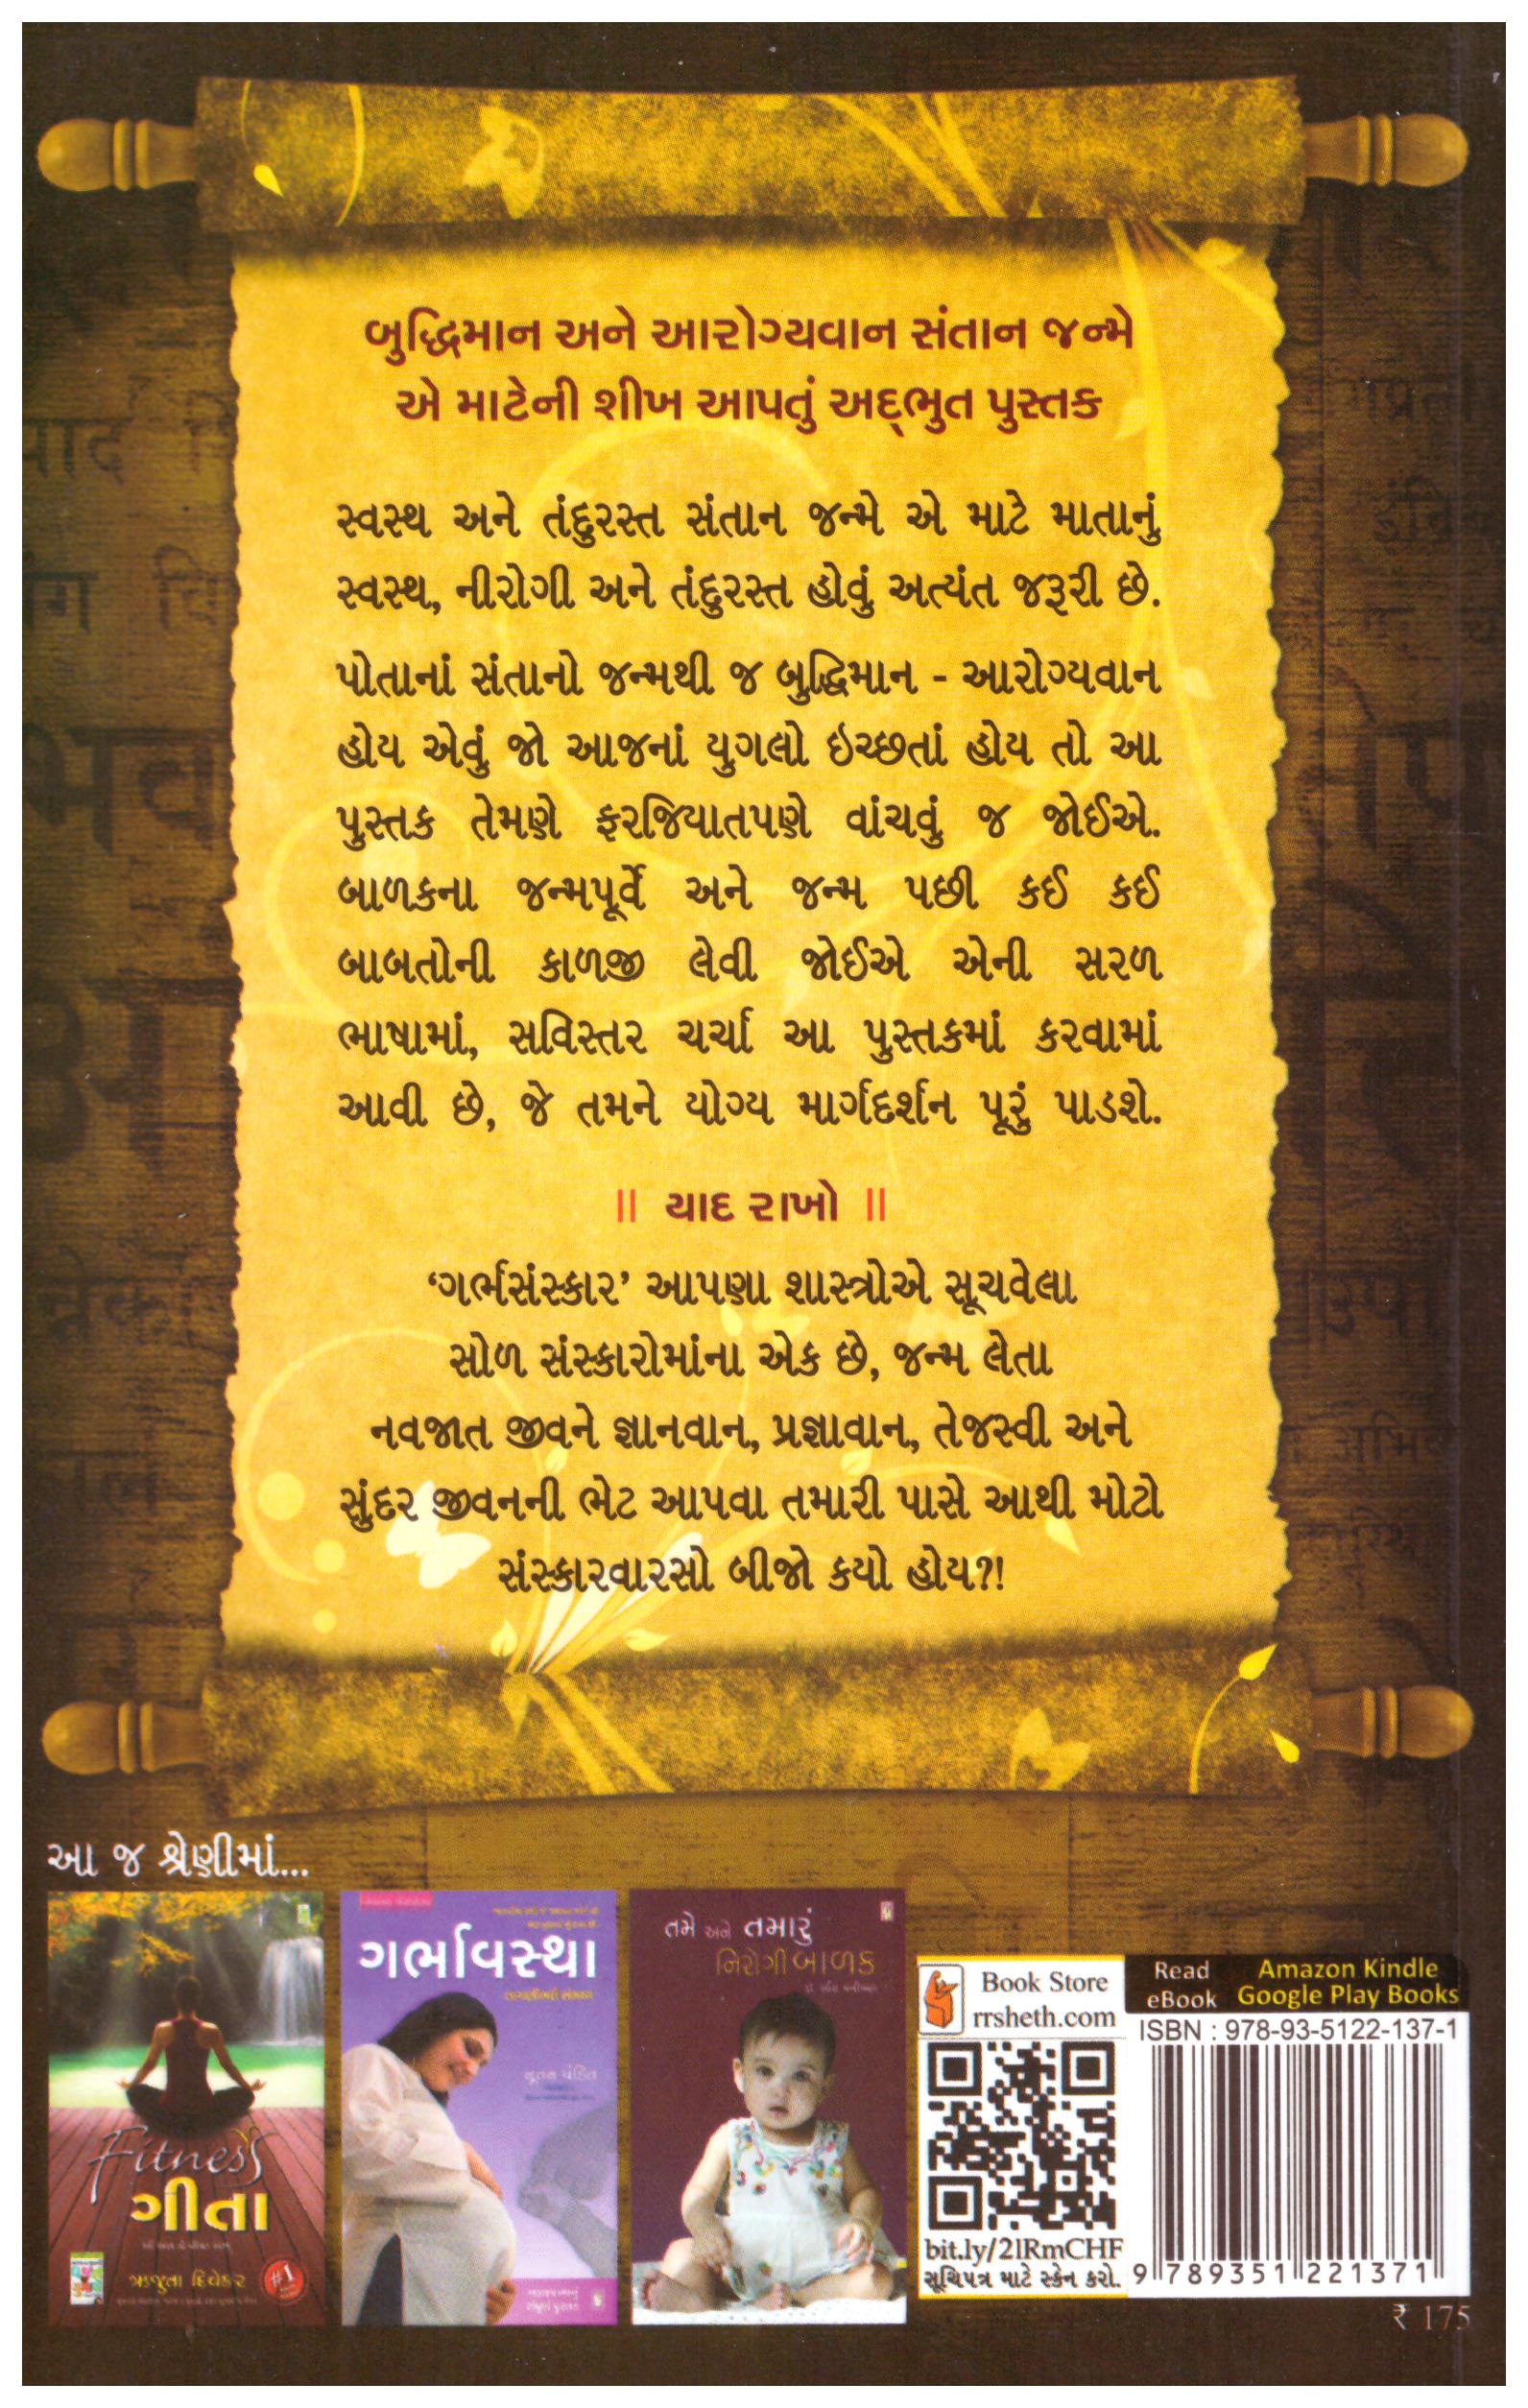 બુદ્ધિમાન અને આરોગ્યવાન સંતાન જન્મે
એ માટેની શીખ આપતું અદ્‌ભુત પુસ્તક
સ્વસ્થ અને તંદુરસ્ત સંતાન જન્મે એ માટે માતાનું
સ્વસ્થ, નીરોગી અને તંદુરસ્ત હોવું અત્યંત જરૂરી છે.
પોતાનાં સંતાનો જન્મથી જ બુદ્ધિમાન - આરોગ્યવાન
હોય એવું જો આજનાં યુગલો ઇચ્છતાં હોય તો આ
પુસ્તક તેમણે ફરજિયાતપણે વાંચવું જ જોઈએ.
બાળકના જન્મપૂર્વે અને જન્મ પછી કઈ કઈ
બાબતોની કાળજી લેવી જોઈએ એની સરળ
ભાષામાં, સવિસ્તર ચર્ચા આ પુસ્તકમાં કરવામાં
આવી છે, જે તમને યોગ્ય માર્ગદર્શન પૂરું પાડશે.
|| યાદ રાખો ||
‘ગર્ભસંસ્કાર’ આપણા શાસ્ત્રોએ સૂચવેલા
સોળ સંસ્કારોમાંના એક છે, જન્મ લેતા
નવજાત જીવને જ્ઞાનવાન, પ્રજ્ઞાવાન, તેજસ્વી અને
સુંદર જીવનની ભેટ આપવા તમારી પાસે આથી મોટો
સંસ્કારવારસો બીજો કયો હોય?!
આ જ શ્રેણીમાં...
Fitness
ગીતા
ઋજુતા દિવેકર
#1
ગર્ભાવસ્થા
નૂતન પંડિત
તમે અને તમારું
નિરોગી બાળક
Book Store
rrsheth.com
Read
eBook
Amazon Kindle
Google Play Books
ISBN : 978-93-5122-137-1
bit.ly/2lRmCHF
સૂચિપત્ર માટે સ્કેન કરો.
9 789351 221371
₹ 175